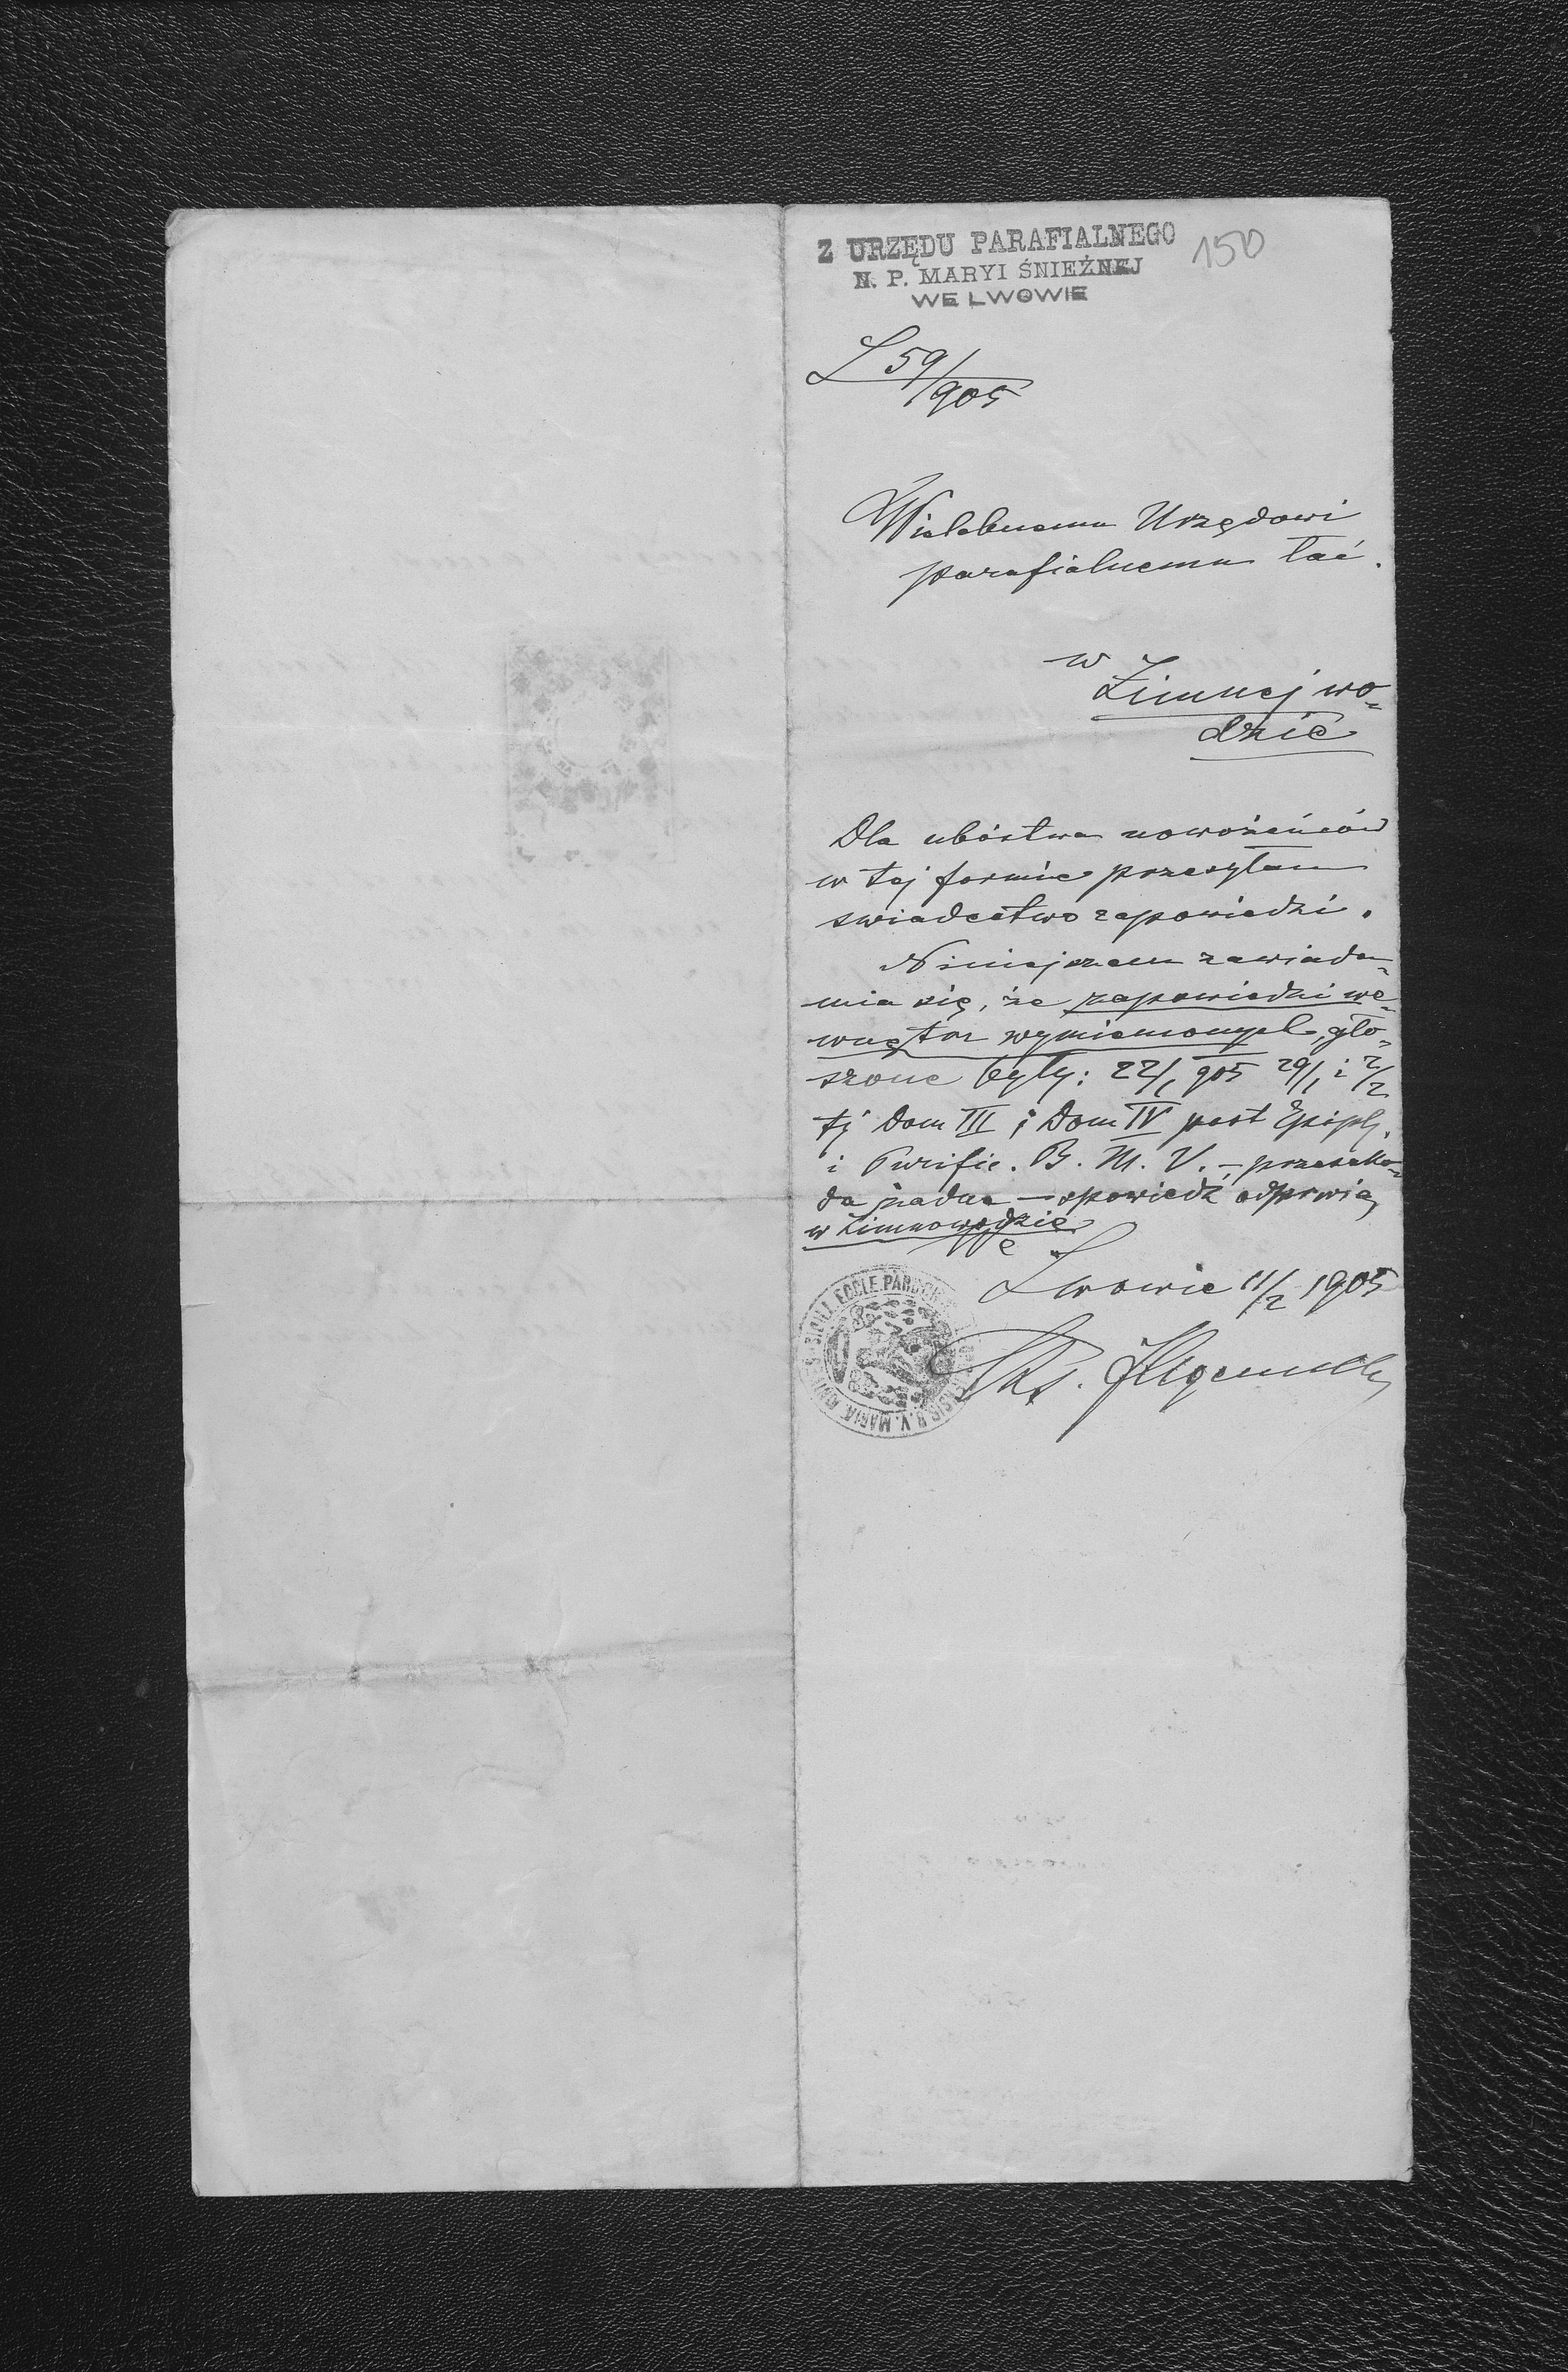 Z URZĘDU PARAFIALNEGO
N. P. MARYI ŚNIEŻNEJ
WE LWOWIE
150
L 59/905
Wielebnemu Urzędowi
parafialnemu łać.
w
Zimnej wo=
dzie
Dla ubóstwa nowożeńców
w tej formie przesyłam
swiadectwo zapowiedzi.
Niniejszem zawiada=
mia się, że zapowiedzi we=
wnątrz wymienionych, gło=
szone były: 22/1 905 29/1 i 2/2
tj Dom III i Dom IV post Epiph.
i Purific. B. M. V. – przeszko=
da żadna – spowiedź odprwią
w Zimnowodzie
We
Lwowie 11/2 1905
Ks.
ECCLE. PAROCH.
B. V. MARIÆ